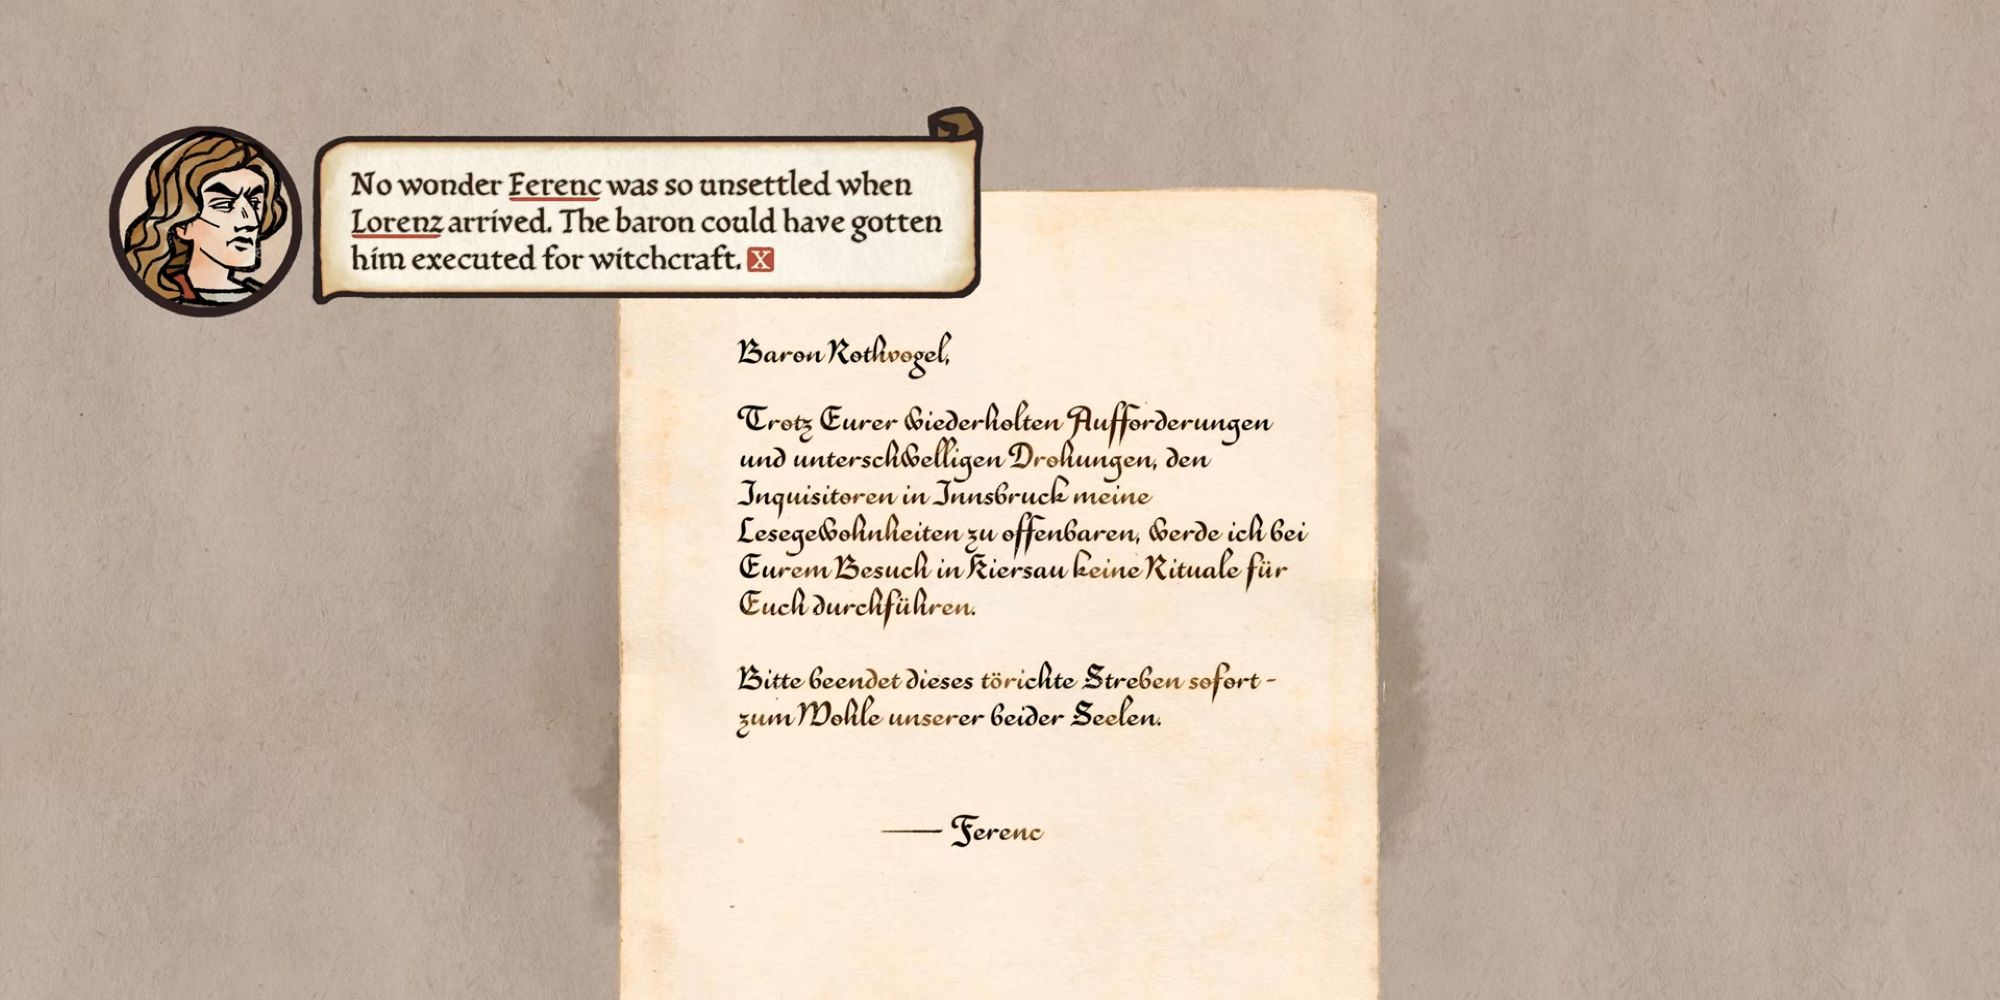 No wonder Ferenc was so unsettled when
Lorenz arrived. The baron could have gotten
him executed for witchcraft. X
Baron Rothvogel,
Trotz Eurer wiederholten Aufforderungen
und unterschwelligen Drohungen, den
Inquisitoren in Innsbruck meine
Lesegewohnheiten zu offenbaren, werde ich bei
Eurem Besuch in Kiersau keine Rituale für
Euch durchführen.
Bitte beendet dieses törichte Streben sofort -
zum Wohle unserer beider Seelen.
— Ferenc